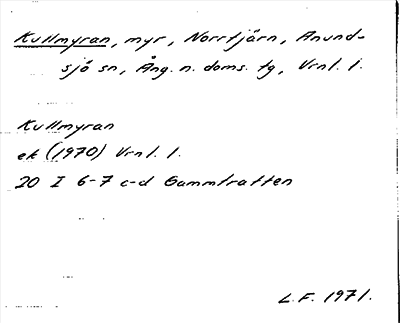 Kullmyran, myr, Norrtjärn, Anund-
sjö sn, Ång. n. doms. tg, Vrnl. l.
Kullmyran
ek (1970) Vrnl. l.
20 I 6-7 c-d Gammtratten
L.F. 1971.